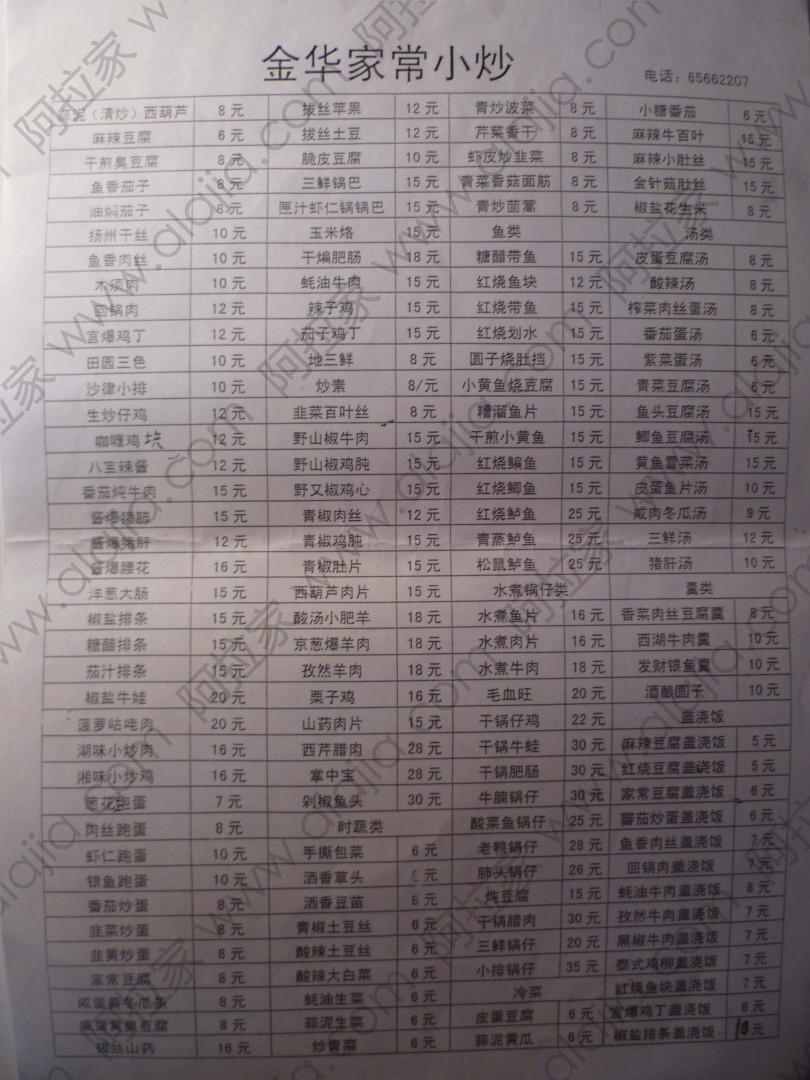 金华家常小炒
电话：65662207
蒜泥（清炒）西葫芦 8元 拔丝苹果 12元 青炒波菜 8元 小糖番茄 6元
麻辣豆腐 6元 拔丝土豆 12元 芹菜香干 8元 麻辣牛百叶 15元
干煎臭豆腐 8元 脆皮豆腐 10元 虾皮炒韭菜 8元 麻辣小肚丝 15元
鱼香茄子 8元 三鲜锅巴 15元 青菜香菇面筋 8元 金针菇肚丝 15元
油焖茄子 8元 匣汁虾仁锅锅巴 15元 青炒茼蒿 8元 椒盐花生米 8元
扬州干丝 10元 玉米烙 15元 鱼类 汤类
鱼香肉丝 10元 干煸肥肠 18元 糖醋带鱼 15元 皮蛋豆腐汤 8元
木须肉 10元 蚝油牛肉 15元 红烧鱼块 12元 酸辣汤 8元
回锅肉 12元 辣子鸡 15元 红烧带鱼 15元 榨菜肉丝蛋汤 8元
宫爆鸡丁 12元 茄子鸡丁 15元 红烧划水 15元 番茄蛋汤 6元
田园三色 10元 地三鲜 8元 圆子烧肚挡 15元 紫菜蛋汤 6元
沙律小排 10元 炒素 8/元 小黄鱼烧豆腐 15元 青菜豆腐汤 6元
生炒仔鸡 12元 韭菜百叶丝 8元 糟溜鱼片 15元 鱼头豆腐汤 15元
咖喱鸡块 12元 野山椒牛肉 15元 干煎小黄鱼 15元 鲫鱼豆腐汤 15元
八宝辣酱 12元 野山椒鸡肫 15元 红烧鳊鱼 15元 黄鱼雪菜汤 15元
番茄炖牛肉 15元 野又椒鸡心 15元 红烧鲫鱼 15元 皮蛋鱼片汤 10元
酱爆猪肺 15元 青椒肉丝 12元 红烧鲈鱼 25元 咸肉冬瓜汤 9元
酱爆猪肝 12元 青椒鸡肫 15元 青蒸鲈鱼 25元 三鲜汤 12元
酱爆腰花 16元 青椒肚片 15元 松鼠鲈鱼 25元 猪肝汤 10元
洋葱大肠 15元 西葫芦肉片 15元 水煮锅仔类 羹类
椒盐排条 15元 酸汤小肥羊 18元 水煮鱼片 16元 香菜肉丝豆腐羹 8元
糖醋排条 15元 京葱爆羊肉 18元 水煮肉片 16元 西湖牛肉羹 10元
茄汁排条 15元 孜然羊肉 18元 水煮牛肉 18元 发财银鱼羹 10元
椒盐牛蛙 20元 栗子鸡 16元 毛血旺 20元 酒酿圆子 10元
菠萝咕咾肉 20元 山药肉片 15元 干锅仔鸡 22元 盖浇饭
湖味小炒肉 16元 西芹腊肉 28元 干锅牛蛙 30元 麻辣豆腐盖浇饭 5元
湘味小炒鸡 16元 掌中宝 28元 干锅肥肠 30元 红烧豆腐盖浇饭 5元
葱花跑蛋 7元 剁椒鱼头 30元 牛腩锅仔 30元 家常豆腐盖浇饭 6元
肉丝跑蛋 8元 时蔬类 酸菜鱼锅仔 25元 蕃茄炒蛋盖浇饭 6元
虾仁跑蛋 10元 手撕包菜 6元 老鸭锅仔 28元 鱼香肉丝盖浇饭 7元
银鱼跑蛋 10元 洒香草头 元 肺头锅仔 26元 回锅肉盖浇饭 7元
番茄炒蛋 8元 洒香豆苗 8元 炖豆腐 15元 蚝油牛肉盖浇饭 8元
韭菜炒蛋 8元 青椒土豆丝 6元 干锅腊肉 30元 孜然牛肉盖浇饭 7元
韭黄炒蛋 8元 酸辣土豆丝 6元 三鲜锅仔 20元 黑椒牛肉盖浇饭 7元
家常豆腐 8元 酸辣大白菜 6元 小排锅仔 35元 泰式鸡柳盖浇饭 7元
咸蛋黄冬瓜条 8元 蚝油生菜 6元 冷菜 红烧鱼块盖浇饭 7元
咸蛋黄臭豆腐 8元 蒜泥生菜 6元 皮蛋豆腐 6元 宫爆鸡丁盖浇饭 8元
拔丝山药 16元 炒青菜 6元 蒜泥黄瓜 6元 椒盐排条盖浇饭 10元
阿拉家 www.alajia.com